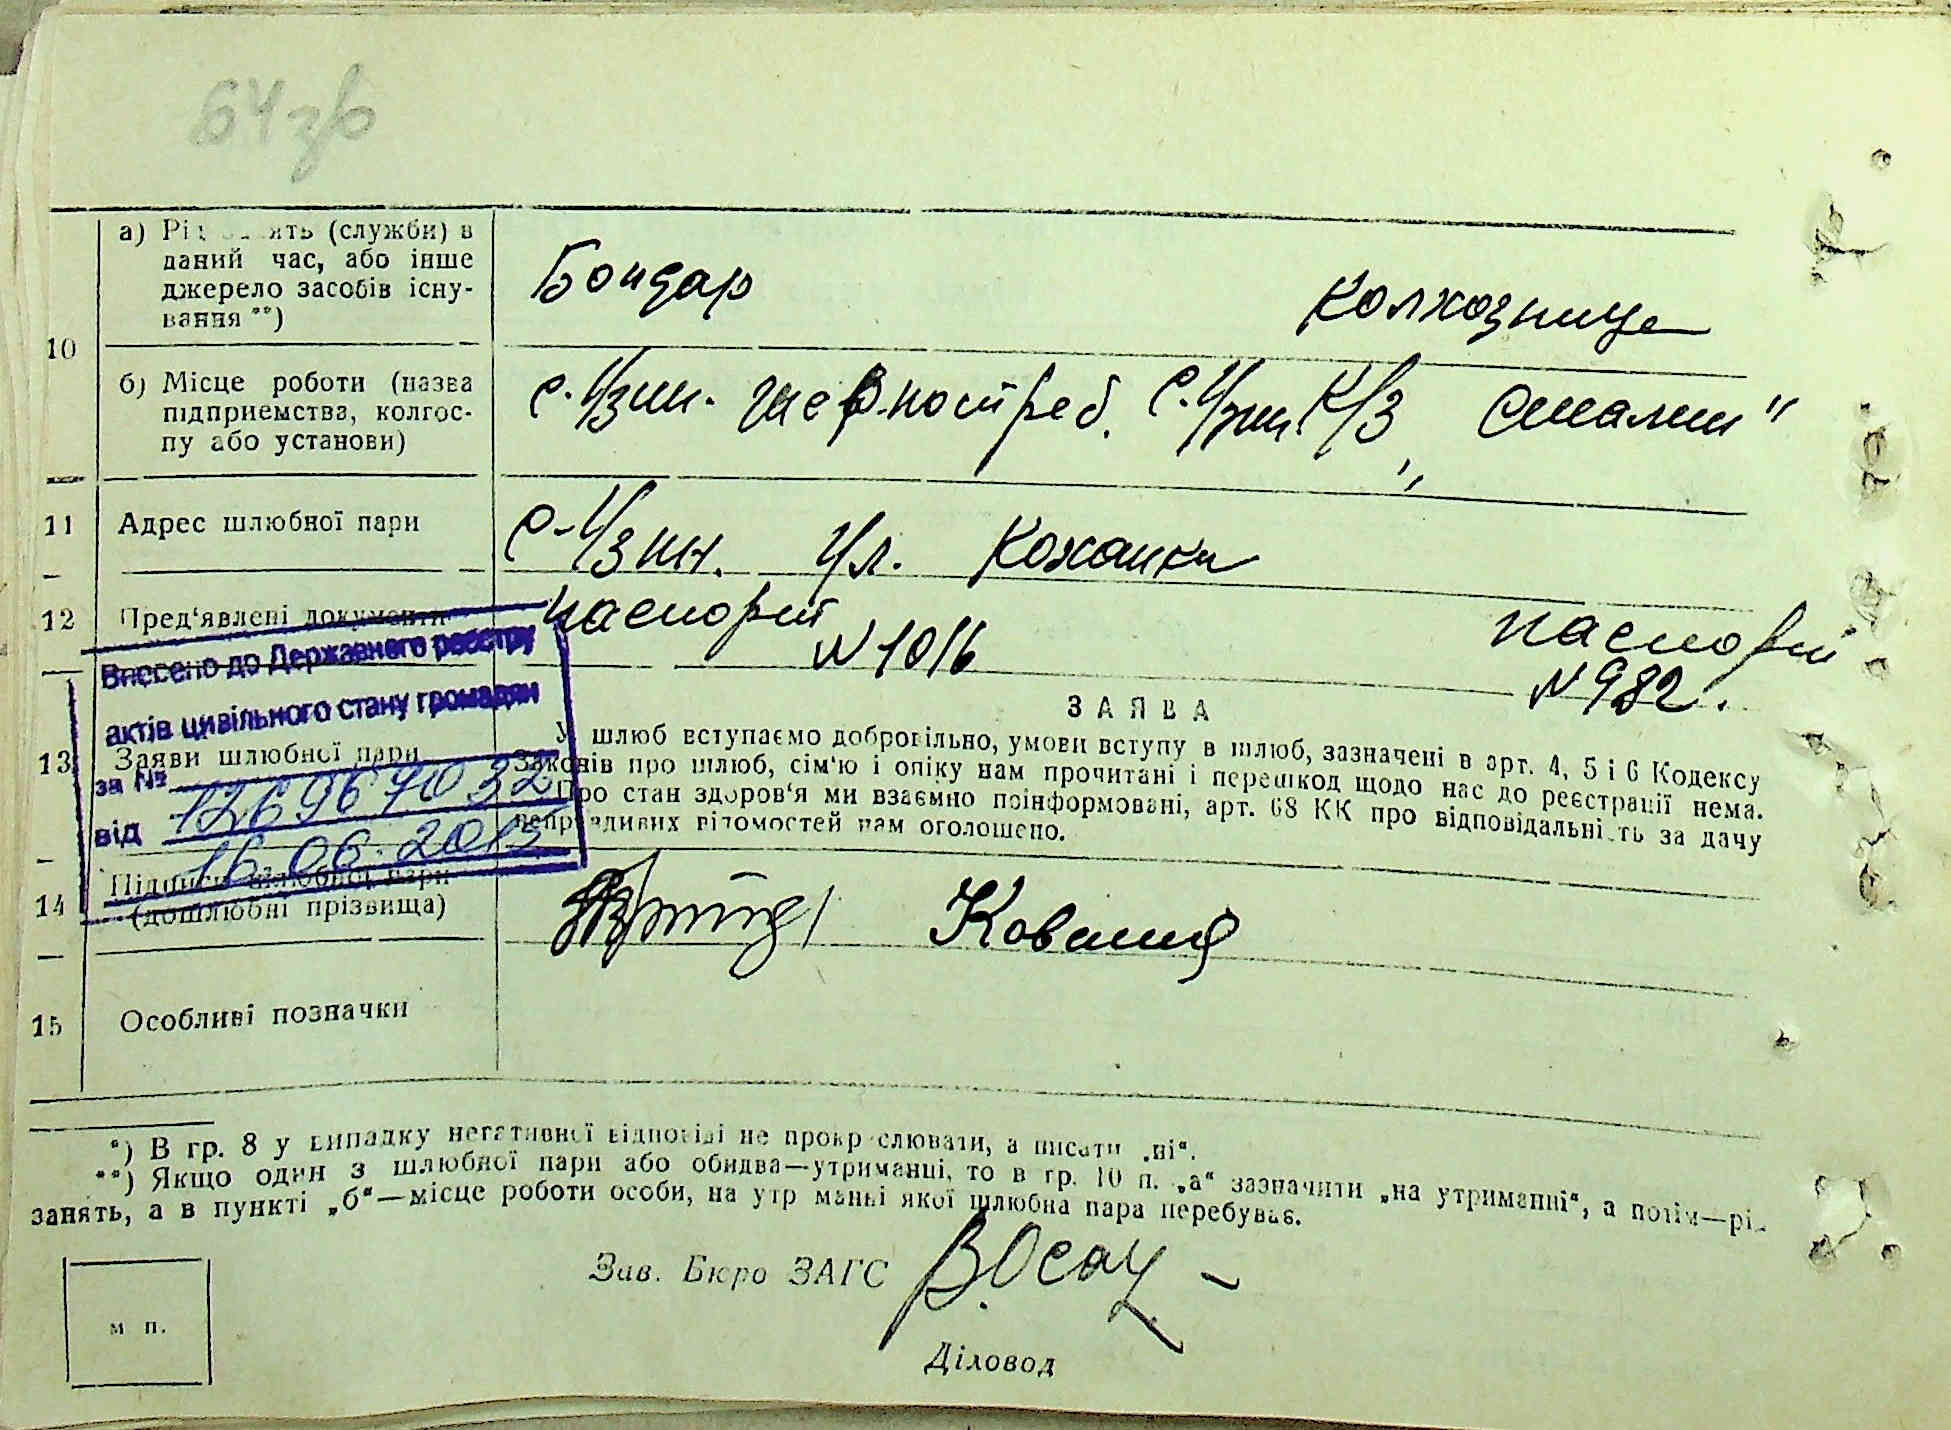 64зв
10
а) Рід занять (служби) в
даний час, або інше
джерело засобів існу-
вання **)
Бондар
Колхозница
б) Місце роботи (назва
підприємства, колгос-
пу або установи)
с. Узин.
с. Узин. К/З „Сталин"
11
Адрес шлюбної пари
с. Узин. Ул. Кожанки
12
Пред'явлені документи
паспорт
N 1016
паспорт
N 982.
Внесено до Державного реєстру
актів цивільного стану громадян
за №
від 16.06.2013
13
Заяви шлюбної пари
ЗАЯВА
У шлюб вступаємо добровільно, умови вступу в шлюб, зазначені в арт. 4, 5 і 6 Кодексу
Законів про шлюб, сім'ю і опіку нам прочитані і перешкод щодо нас до реєстрації нема.
Про стан здоров'я ми взаємно поінформовані, арт. 68 КК про відповідальність за дачу
неправдивих відомостей нам оголошено.
14
Підписи шлюбної пари
(дошлюбні прізвища)
15
Особливі позначки
*) В гр. 8 у випадку негативної відповіді не прокреслювати, а писати „ні".
**) Якщо один з шлюбної пари або обидва—утриманці, то в гр. 10 п. „а" зазначити „на утриманні", а потім—рід
занять, а в пункті „б"—місце роботи особи, на утриманні якої шлюбна пара перебуває.
Зав. Бюро ЗАГС
м п.
Діловод